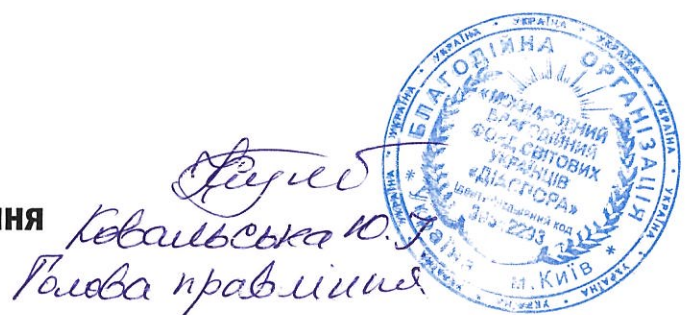 ння
Ковальська Ю.
Голова правління
УКРАЇНА • УКРАЇНА • УКРАЇНА • УКРАЇНА • УКРАЇНА • УКРАЇНА
БЛАГОДІЙНА ОРГАНІЗАЦІЯ
* Україна м. Київ *
«МІЖНАРОДНИЙ
БЛАГОДІЙНИЙ
ФОНД СВІТОВИХ
УКРАЇНЦІВ
«ДІАСПОРА»
Ідентифікаційний код